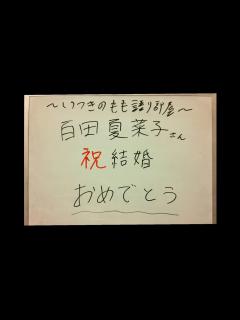 ～いつきのもも語り部屋～
百田夏菜子さん
祝結婚
おめでとう